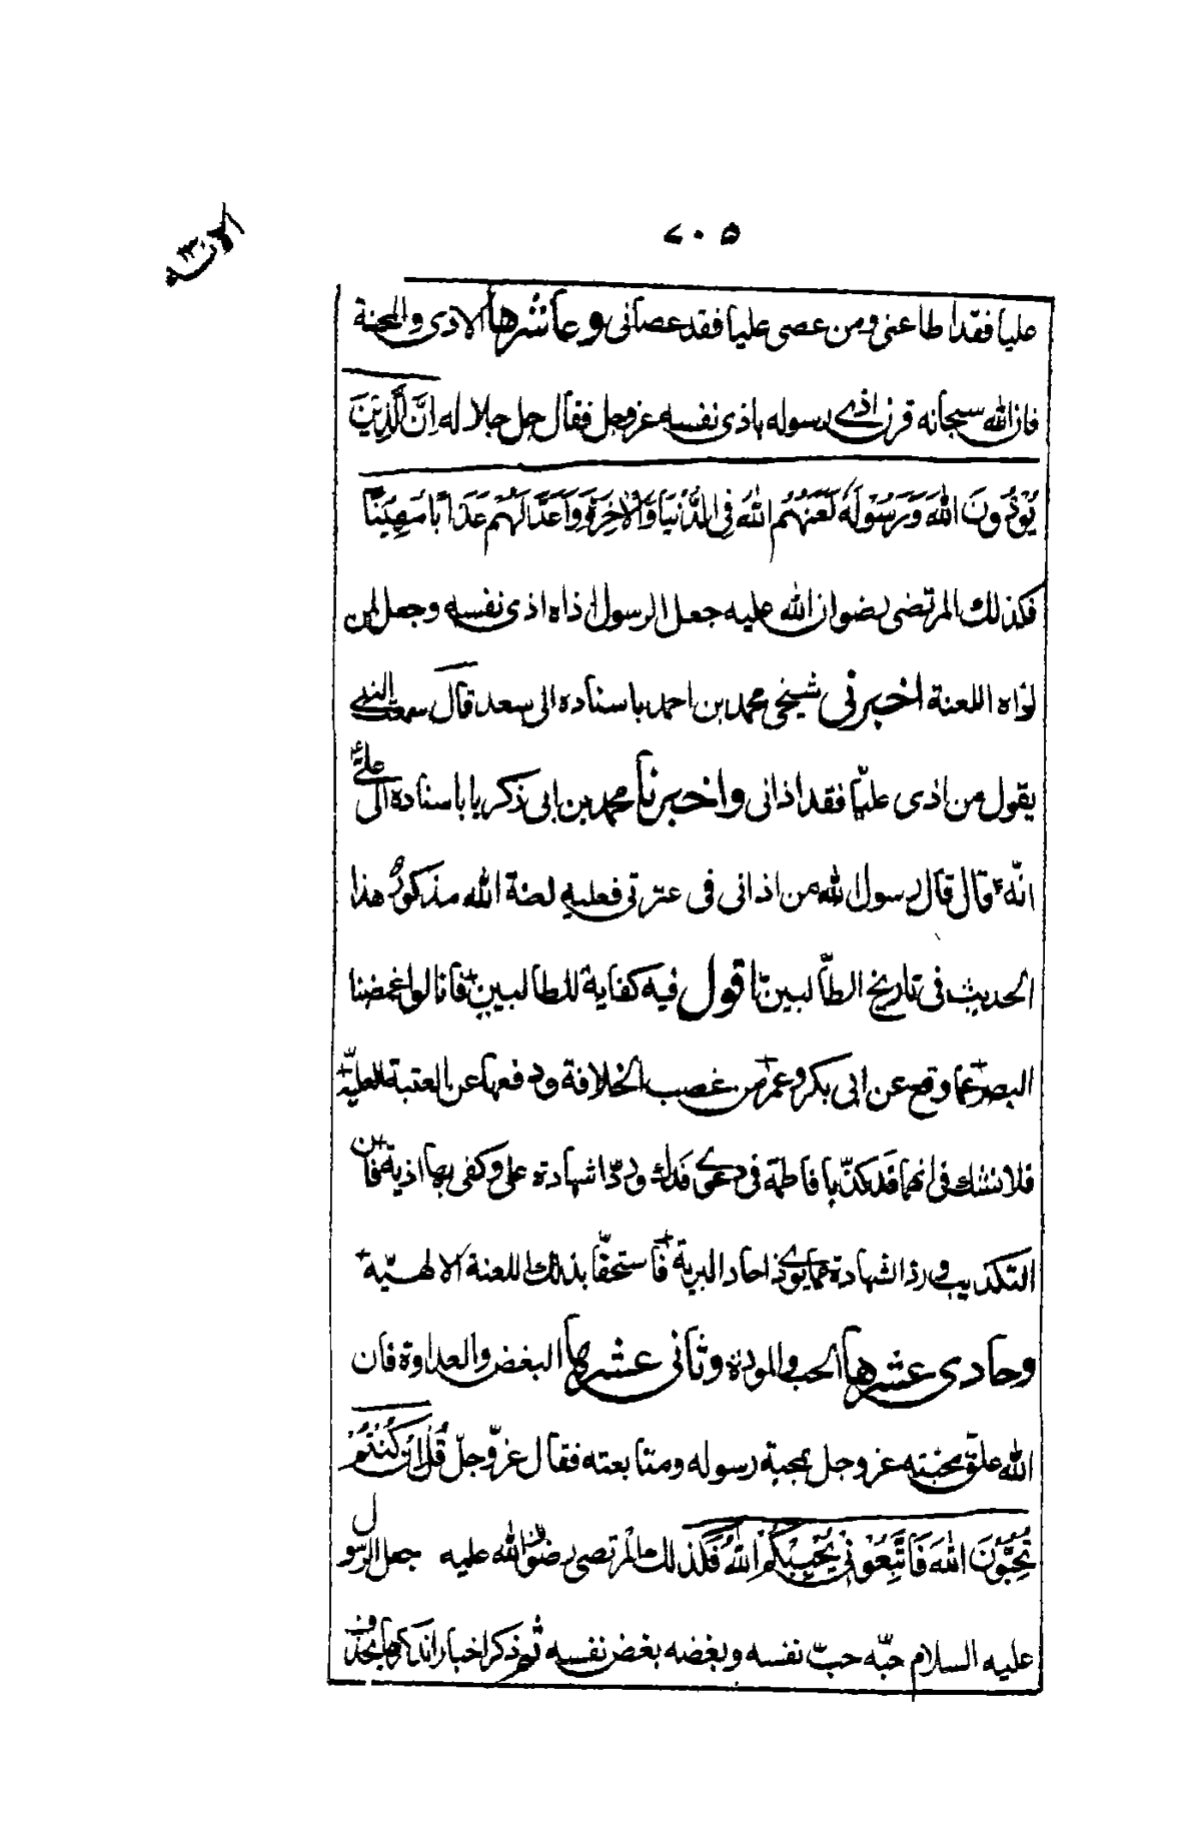 ۷۰۵
عليا فقد اطاعنى ومن عصى عليا فقد عصانى وعاشرها الاذى والمحنة
فان الله سبحانه قرن اذى رسوله باذى نفسه عز وجل فقال جل جلاله اِنَّ الَّذِيْنَ
يُؤْذُونَ اللهَ وَرَسُوْلَهُ لَعَنَهُمُ اللهُ فِى الدُّنْيَا وَالْاٰخِرَةِ وَاَعَدَّ لَهُمْ عَذَابًا مُهِيْنًا
فكذلك المرتضى رضوان الله عليه جعل الرسول اذاه اذى نفسه وجعل لمن
اذاه اللعنة اخبرنى شيخى محمد بن احمد باسناده الى سعد قال سمعت النبى
يقول من اذى عليّا فقد اذانى واخبرنا محمد بن ابى ذكريا باسناده الى علىّ
انّه قال قال رسول الله من اذانى فى عترتى فعليه لعنة الله مذكور هذا
الحديث فى تاريخ الطّالبين اقول فيه كفاية للطالبين فانا لو اغمضنا
البصر عما وقع عن ابى بكر وعمر من غصب الخلافة ودفعها عن العتبة العليّة
فلا نشك فى انهما قد كذّبا فاطمة فى دعوى فدك وردّا شهادة على وكفى بها اذية فان
التكذيب ورد الشهادة مما يوذى احاد البرية فاستحقّا بذلك اللعنة الالهيّة
وحادى عشرها الحب والمودة وثانى عشرها البغض والعداوة فان
الله علّق محبته عز وجل بمحبة رسوله ومتابعته فقال عزّ وجلّ قُلْ اِنْ كُنْتُمْ
تُحِبُّوْنَ اللهَ فَاتَّبِعُوْنِى يُحْبِبْكُمُ اللهُ فكذلك المرتضى رضوان الله عليه جعل الرسول
عليه السلام حبّه حبّ نفسه وبغضه بغض نفسه ثم ذكر اخبارا